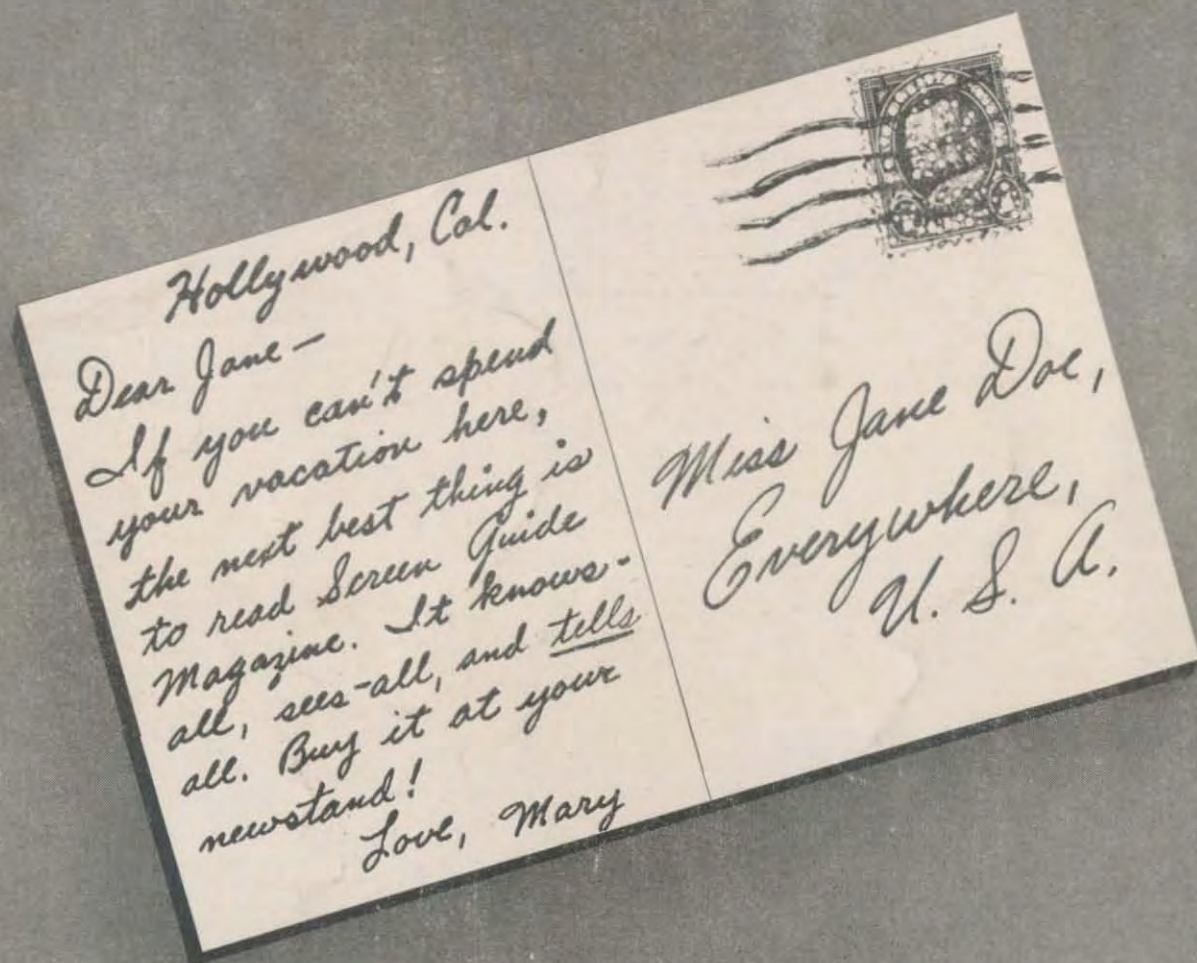 Hollywood, Cal.
Dear Jane—
If you can't spend
your vacation here,
the next best thing is
to read Screen Guide
Magazine. It knows-
all, sees-all, and tells
all. Buy it at your
newstand!
Love, Mary
Miss Jane Doe,
Everywhere,
U. S. A.